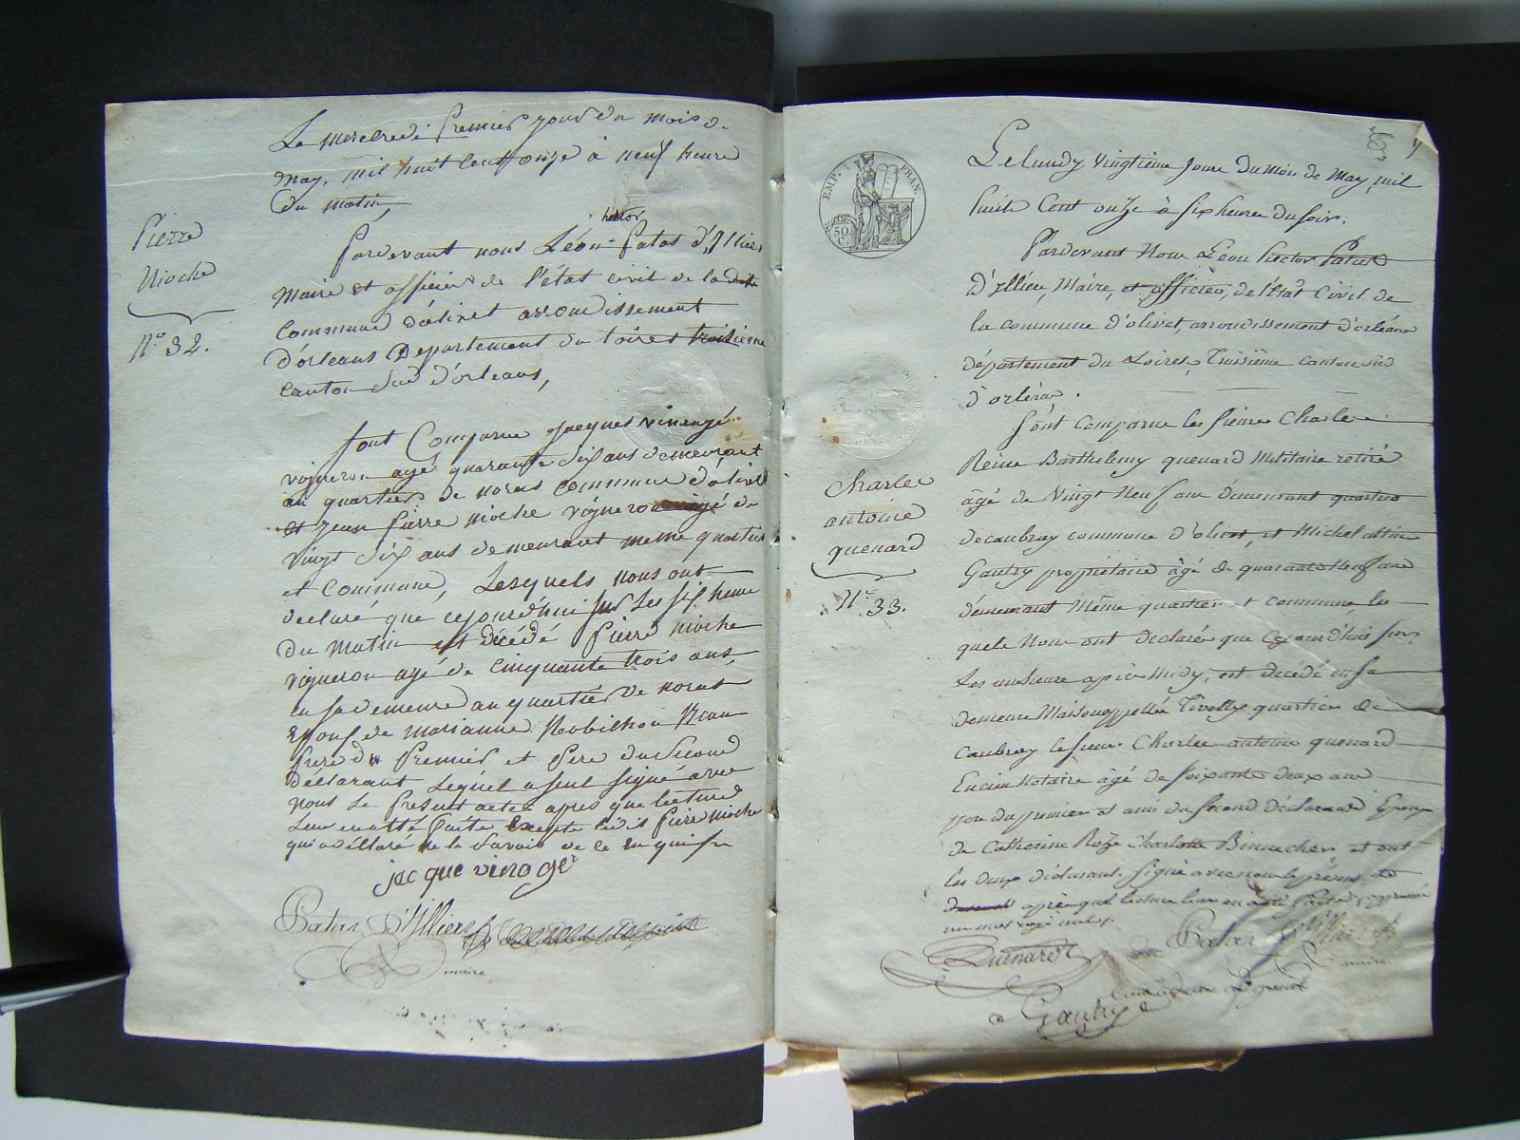 Le mercredi Premier jour du mois de
may, mil huit cent onze à neuf heure
du matin,
Pierre
Mioche
N.º 32.
hector
Pardevant nous Léon Patas d'Illiers
Maire et officier de l'état civil de la dite
commune d'olivet arrondissement
d'orleans Departement du loiret troisieme
canton sud d'orleans,
sont Comparue jacques vinagé
vigneron agé quarante six ans demeurant
au quartier de noras commune d'olivet
et jean pierre mioche vigneron agé de
vingt six ans demeurant meme quartier
et commune, Lesquels nous ont
declaré que cejourd'hui sur les six heure
du matin est décédé Pierre mioche
vigneron agé de cinquante trois ans,
en sa demeure au quartier de noras
Epoux de marianne Beau
frere du Premier et Pere du Second
declarant Lequel a seul signé avec
nous Le Present acte apres que lecture
Leur en a été faite Excepte ledit Pierre mioche
qui a déclaré ne le savoir de ce
jacque vinage
Patas d'Illiers
maire
EMP. FRAN.
50
C.
Le lundy vingtieme Jour du Mois de May, mil
huit Cent onze à six heure du soir.
Pardevant Nous Léon hector Patas
D'Illiers, Maire, et officier, de l'état Civil de
la commune d'olivet, arrondissement d'orléans
département du Loiret, Troisième canton sud
d'orléans.
Sont comparue les sieurs Charle
Reine Barthelemy quenard Militaire retiré
âgé de Vingt Neuf ans demeurant quartier
de caubray commune d'olivet, et Michel
Gautry propriétaire âgé de quarante neuf ans
demeurant Même quartier et commune les
quels Nous ont declaré que cejourd'hui sur
les onze heure après Midy, est décédé en sa
demeure Maison appellée Tivolly quartier de
caubray le sieur Charles antoine quenard
Encien Notaire âgé de soixante deux ans
pere du premier et ami du second Déclarant Epoux
de Catherine Roze Charlotte et ont
les deux déclarants signé avec nous le présent
après que lecture leur en a été faite approuvé
un mot rayé nul.
Charle
antoine
quenard
N.º 33.
Patas d'Illiers
maire
Gautry